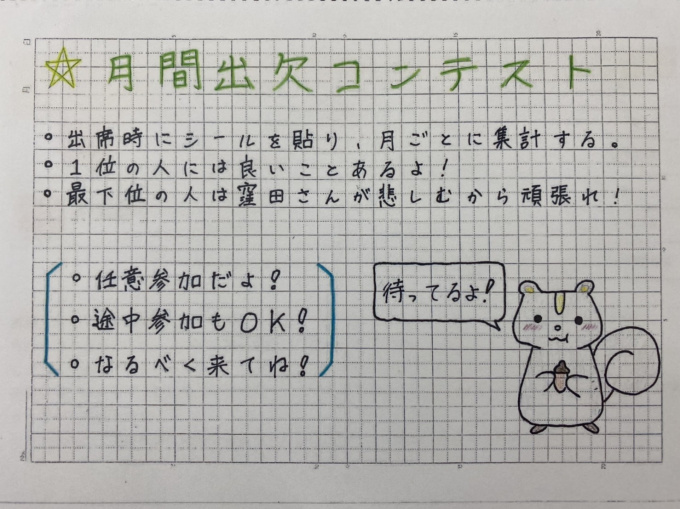 ☆月間出欠コンテスト
○ 出席時にシールを貼り、月ごとに集計する。
○ 1位の人には良いことあるよ！
○ 最下位の人は窪田さんが悲しむから頑張れ！
○ 任意参加だよ！
○ 途中参加もOK！
○ なるべく来てね！
待ってるよ！